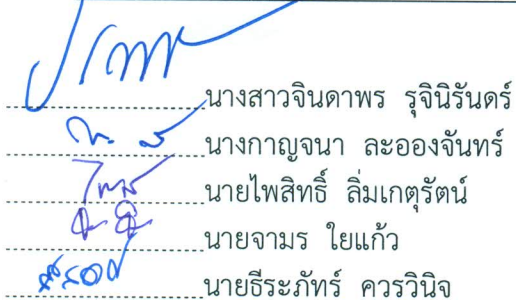 นางสาวจินดาพร รุจินิรันดร์
นางกาญจนา ละอองจันทร์
นายไพสิทธิ์ ลิ่มเกตุรัตน์
นายจามร ใยแก้ว
นายธีระภัทร์ ควรวินิจ